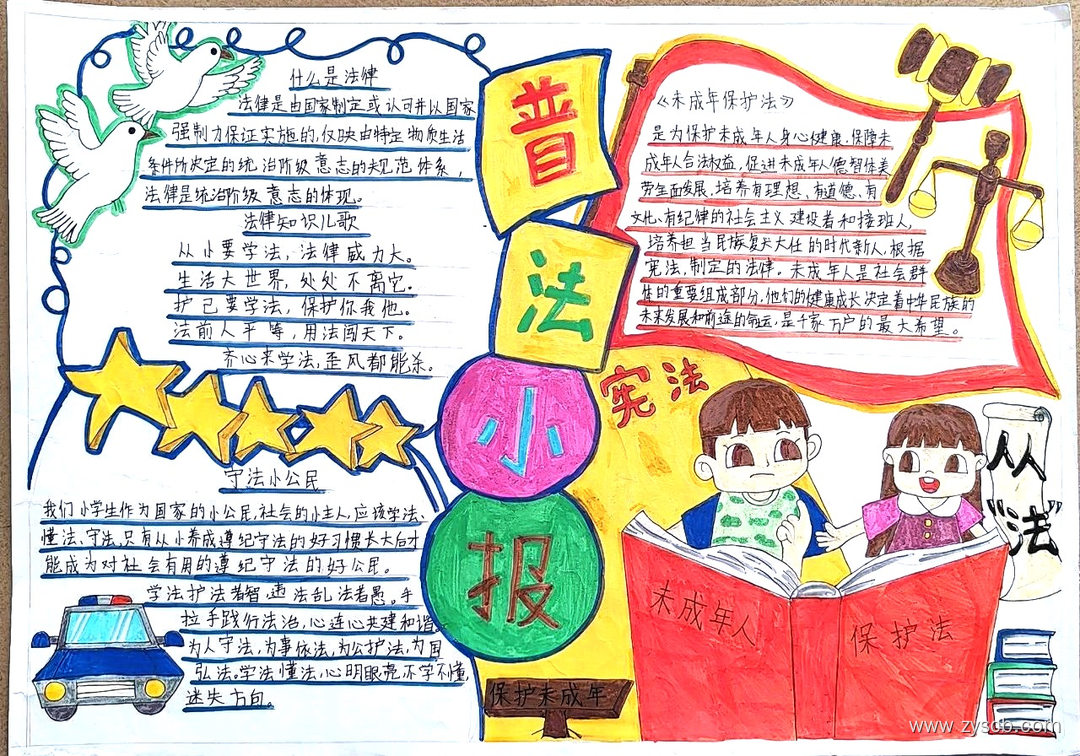 什么是法律
法律是由国家制定或认可并以国家
强制力保证实施的,仅映由特定物质生活
条件所决定的统治阶级意志的规范体系,
法律是统治阶级意志的体现。
法律知识儿歌
从小要学法,法律威力大。
生活大世界,处处不离它。
护己要学法,保护你我他。
法前人平等,用法闯天下。
齐心来学法,歪风都能杀。
守法小公民
我们小学生作为国家的小公民,社会的小主人,应该学法、
懂法、守法,只有从小养成遵纪守法的好习惯长大后才
能成为对社会有用的遵纪守法的好公民。
学法护法者智,违法乱法者愚。手
拉手践行法治,心连心共建和谐
为人守法,为事依法,为公护法,为国
弘法。学法懂法,心明眼亮不学不懂,
迷失方向。
普
法
小
报
《未成年保护法》
是为保护未成年人身心健康,保障未
成年人合法权益,促进未成年人德智体美
劳全面发展,培养有理想、有道德、有
文化、有纪律的社会主义建设者和接班人,
培养担当民族复兴大任的时代新人,根据
宪法,制定的法律。未成年人是社会群
体的重要组成部分,他们的健康成长决定着中华民族的
未来发展和前途的命运,是千家万户的最大希望。
宪法
从
“法”
未成年人
保护法
保护未成年
www.zyscb.com